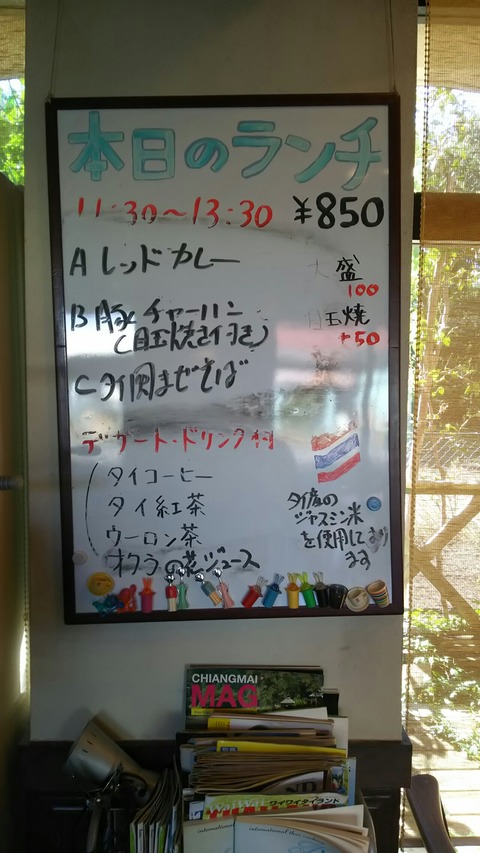 本日のランチ
11:30～13:30 ¥850
A レッドカレー
大盛
100
B 豚チャーハン
(目玉焼き付き)
目玉焼
+50
C タイ風まぜそば
デザート・ドリンク付
タイコーヒー
タイ紅茶
ウーロン茶
オクラの花ジュース
タイ産の
ジャスミン米
を使用しており
ます
CHIANGMAI
MAG
ワイワイタイランド